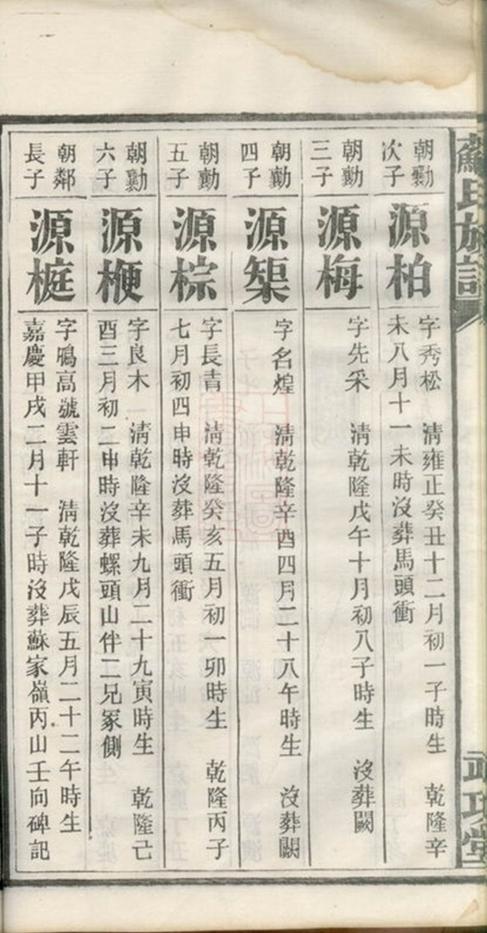 蘇氏族譜
武功堂
朝勳
次子
源柏
字秀松 清雍正癸丑十二月初一子時生 乾隆辛
未八月十一未時沒葬馬頭衝
朝勳
三子
源梅
字先采 清乾隆戊午十月初八子時生 沒葬闕
朝勳
四子
源榘
字名煌 清乾隆辛酉四月二十八午時生 沒葬闕
朝勳
五子
源棕
字長青 清乾隆癸亥五月初一卯時生 乾隆丙子
七月初四申時沒葬馬頭衝
朝勳
六子
源楩
字良木 清乾隆辛未九月二十九寅時生 乾隆己
酉三月初二申時沒葬螺頭山伴二兄冢側
朝鄰
長子
源梃
字鳴高號雲軒 清乾隆戊辰五月二十二午時生
嘉慶甲戌二月十一子時沒葬蘇家嶺丙山壬向碑記